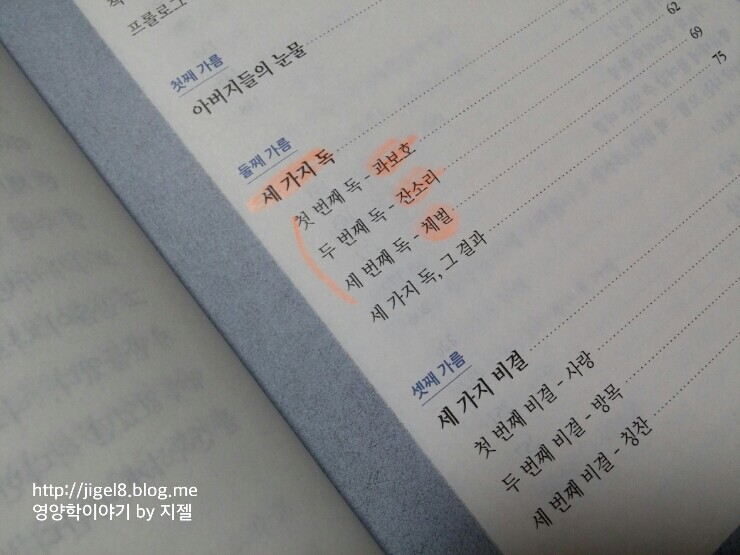 프롤로그
첫째 가름
아버지들의 눈물
둘째 가름
세 가지 독
첫 번째 독 - 과보호
두 번째 독 - 잔소리 62
세 번째 독 - 체벌 69
세 가지 독, 그 결과 75
셋째 가름
세 가지 비결
첫 번째 비결 - 사랑
두 번째 비결 - 방목
세 번째 비결 - 칭찬
http://jigel8.blog.me
영양학이야기 by 지젤